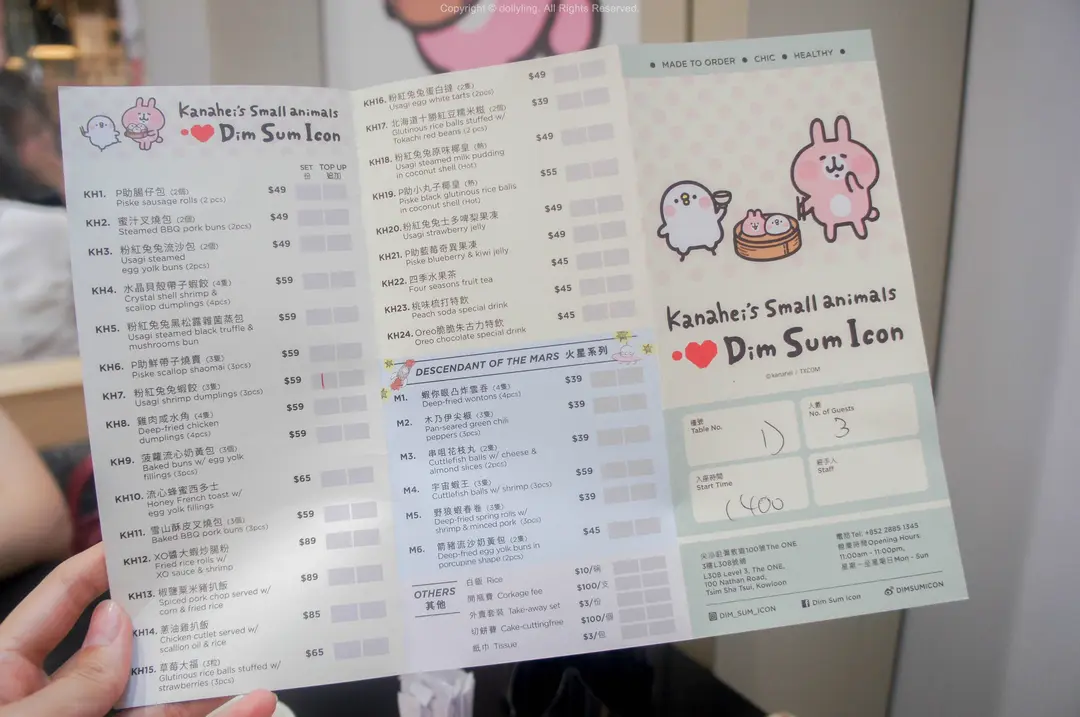 Copyright © dollyling. All Rights Reserved.
Kanahei's Small animals
Dim Sum Icon
SET TOP UP
份 追加
KH1. P助腸仔包 (2個) $49
Piske sausage rolls (2 pcs)
KH2. 蜜汁叉燒包 (2個) $49
Steamed BBQ pork buns (2pcs)
KH3. 粉紅兔兔流沙包 (2個) $49
Usagi steamed
egg yolk buns (2pcs)
KH4. 水晶貝殼帶子蝦餃 (4隻) $59
Crystal shell shrimp &
scallop dumplings (4pcs)
KH5. 粉紅兔兔黑松露雜菌蒸包 $59
Usagi steamed black truffle &
mushrooms bun
KH6. P助鮮帶子燒賣 (3隻) $59
Piske scallop shaomai (3pcs)
KH7. 粉紅兔兔蝦餃 (3隻) $59
Usagi shrimp dumplings (3pcs)
KH8. 雞肉咸水角 (4隻) $59
Deep-fried chicken
dumplings (4pcs)
KH9. 菠蘿流心奶黃包 (3個) $59
Baked buns w/ egg yolk
fillings (3pcs)
KH10. 流心蜂蜜西多士 $65
Honey French toast w/
egg yolk fillings
KH11. 雪山酥皮叉燒包 (3個) $59
Baked BBQ pork buns (3pcs)
KH12. XO醬大蝦炒腸粉 $89
Fried rice rolls w/
XO sauce & shrimp
KH13. 椒鹽粟米豬扒飯 $89
Spiced pork chop served w/
corn & fried rice
KH14. 蔥油雞扒飯 $85
Chicken cutlet served w/
scallion oil & rice
KH15. 草莓大福 (3粒) $65
Glutinous rice balls stuffed w/
strawberries (3pcs)
KH16. 粉紅兔兔蛋白撻 (2隻) $49
Usagi egg white tarts (2pcs)
KH17. 北海道十勝紅豆糯米糍 (2個) $39
Glutinous rice balls stuffed w/
Tokachi red beans (2 pcs)
KH18. 粉紅兔兔原味椰皇 (熱) $49
Usagi steamed milk pudding
in coconut shell (Hot)
KH19. P助小丸子椰皇 (熱) $55
Piske black glutinous rice balls
in coconut shell (Hot)
KH20. 粉紅兔兔士多啤梨果凍 $49
Usagi strawberry jelly
KH21. P助藍莓奇異果凍 $49
Piske blueberry & kiwi jelly
KH22. 四季水果茶 $45
Four seasons fruit tea
KH23. 桃味梳打特飲 $45
Peach soda special drink
KH24. Oreo脆脆朱古力特飲 $45
Oreo chocolate special drink
DESCENDANT OF THE MARS 火星系列
M1. 蝦你眼凸炸雲吞 (4隻) $39
Deep-fried wontons (4pcs)
M2. 木乃伊尖椒 (3隻) $39
Pan-seared green chili
peppers (3pcs)
M3. 串咀花枝丸 (2隻) $39
Cuttlefish balls w/ cheese &
almond slices (2pcs)
M4. 宇宙蝦王 (3隻) $59
Cuttlefish balls w/ shrimp (3pcs)
M5. 野狼蝦春卷 (3隻) $39
Deep-fried spring rolls w/
shrimp & minced pork (3pcs)
M6. 箭豬流沙奶黃包 (2隻) $45
Deep-fried egg yolk buns in
porcupine shape (2pcs)
OTHERS
其他
白飯 Rice $10/碗
開瓶費 Corkage fee $100/支
外賣套裝 Take-away set $3/份
切餅費 Cake-cuttingfree $100/個
紙巾 Tissue $3/包
MADE TO ORDER ● CHIC ● HEALTHY
Kanahei's Small animals
Dim Sum Icon
©kanahei / TXCOM
檯號
Table No. 1D
人數
No. of Guests 3
入座時間
Start Time 1400
經手人
Staff
尖沙咀彌敦道100號The ONE
3樓L308號舖
L308 Level 3, The ONE,
100 Nathan Road,
Tsim Sha Tsui, Kowloon
電話 Tel: +852 2885 1345
營業時間Opening Hours:
11:00am - 11:00pm,
星期一至星期日 Mon - Sun
DIM_SUM_ICON
Dim Sum Icon
DIMSUMICON